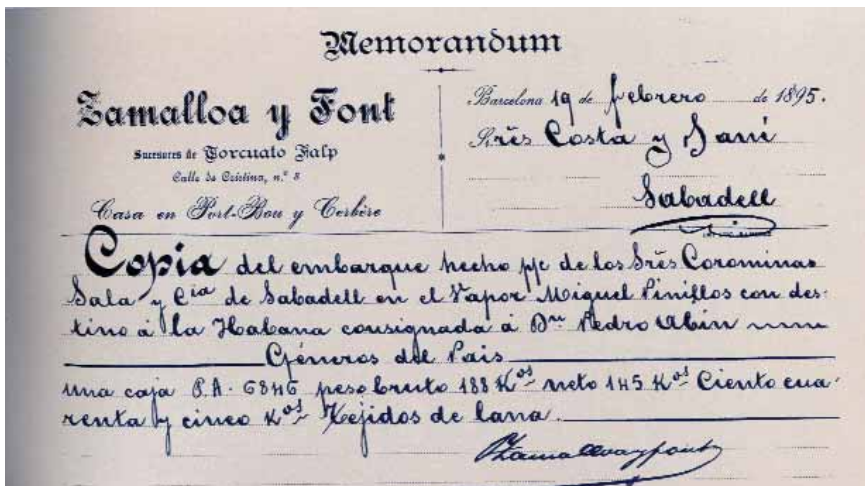 Memorandum
Zamalloa y Font
Sucesores de Torcuato Falp
Calle de Cristina, n.º 8
Casa en Port-Bou y Cerbère
Barcelona 19 de febrero de 1895.
Srês Costa y Jani
Sabadell
Copia del embarque hecho p/c de los Srês Corominas
Sala y Cia de Sabadell en el Vapor Miguel Pinillos con des-
tino á la Habana consignada á Dn Pedro Abin
Géneros del Pais
una caja P.A. 6846 peso bruto 188 Kos neto 145 Kos Ciento cua-
renta y cinco Kos Tejidos de lana.
Zamalloa y font